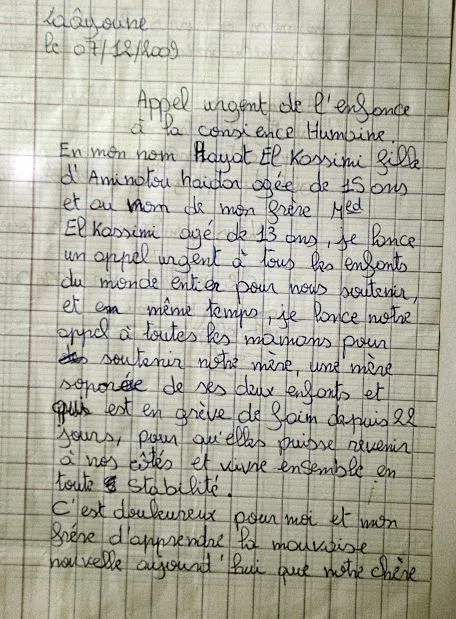 Laâyoune
le 07/12/2009
Appel urgent de l'enfance
à la consience Humaine.
En mon nom Hayat El Kassimi fille
d'Aminatou haidar agée de 15 ans
et au nom de mon frère Med
El Kassimi agé de 13 ans, je lance
un appel urgent à tous les enfants
du monde entier pour nous soutenir,
et en même temps, je lance notre
appel à toutes les mamans pour
soutenir notre mère, une mère
soporée de ses deux enfants et
qui est en grève de faim depuis 22
jours, pour qu'elles puisse revenir
à nos côtés et vivre ensemble en
toute stabilité.
C'est douleureux pour moi et mon
frère d'apprendre la mauvaise
nouvelle aujourd'hui que notre chère